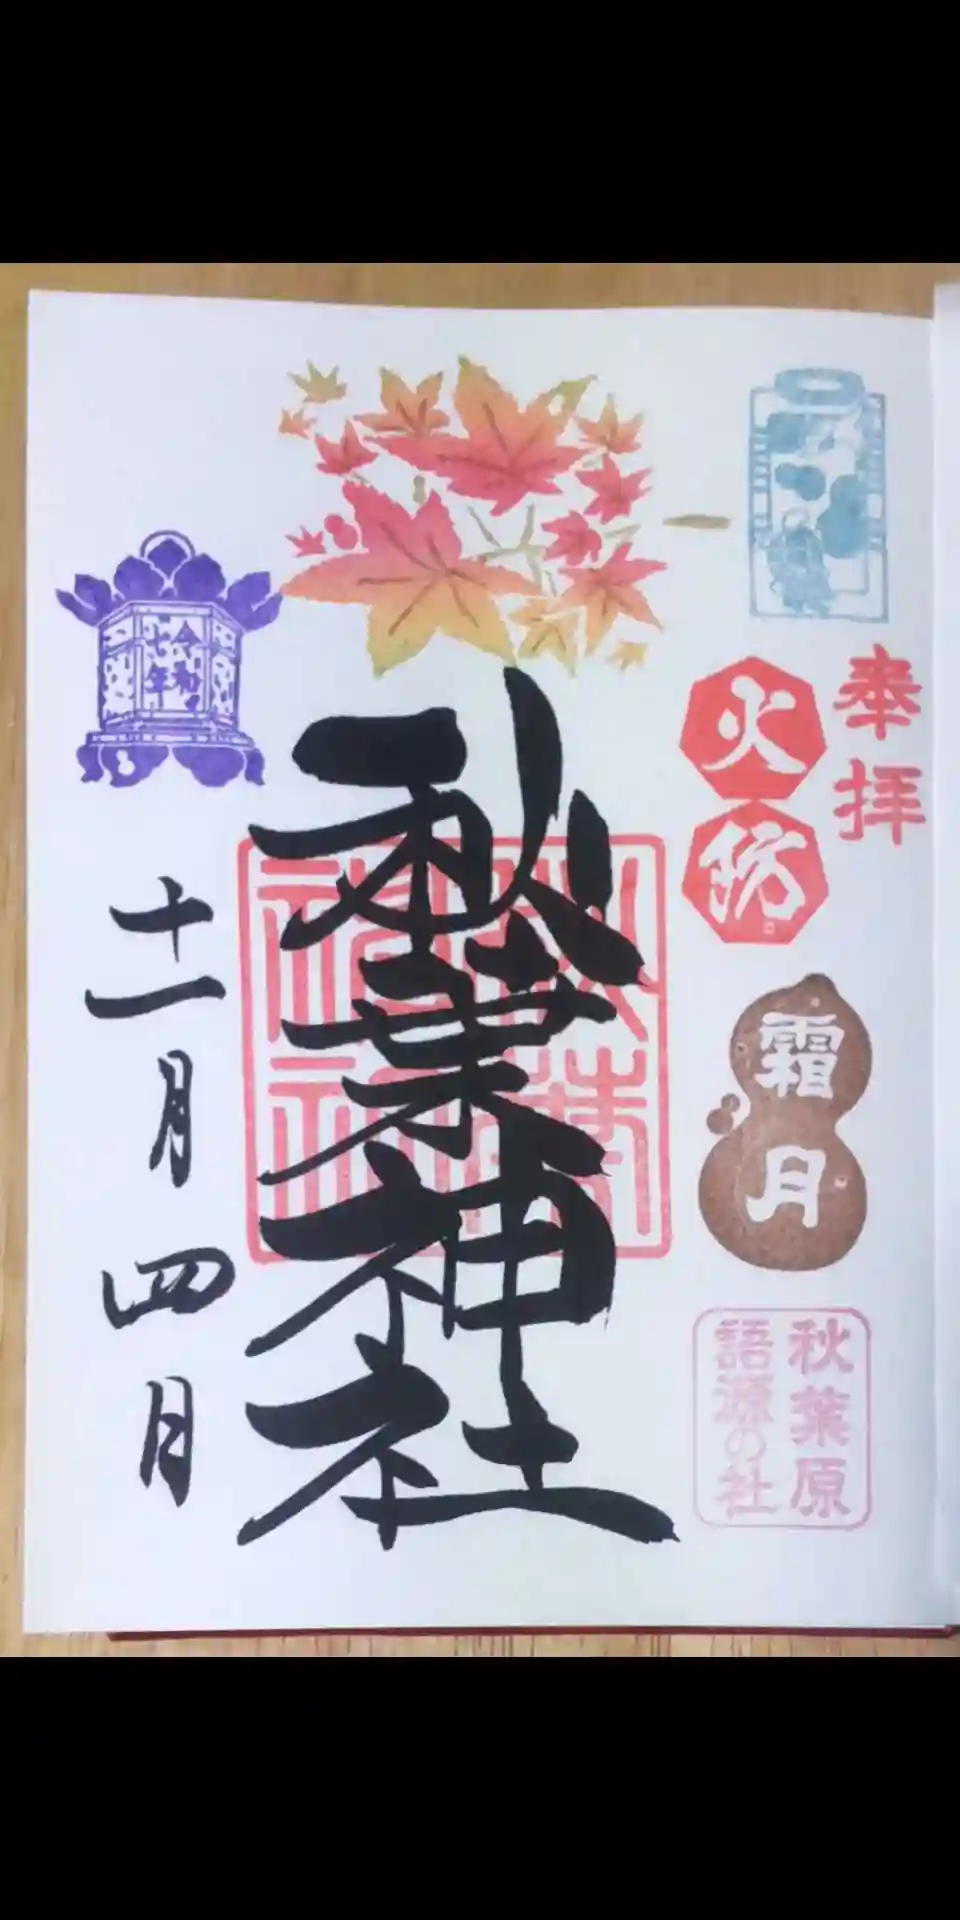 奉拝
火防
霜月
秋葉原
語源の社
秋葉神社
秋葉
神社
令和
七年
十一月四日